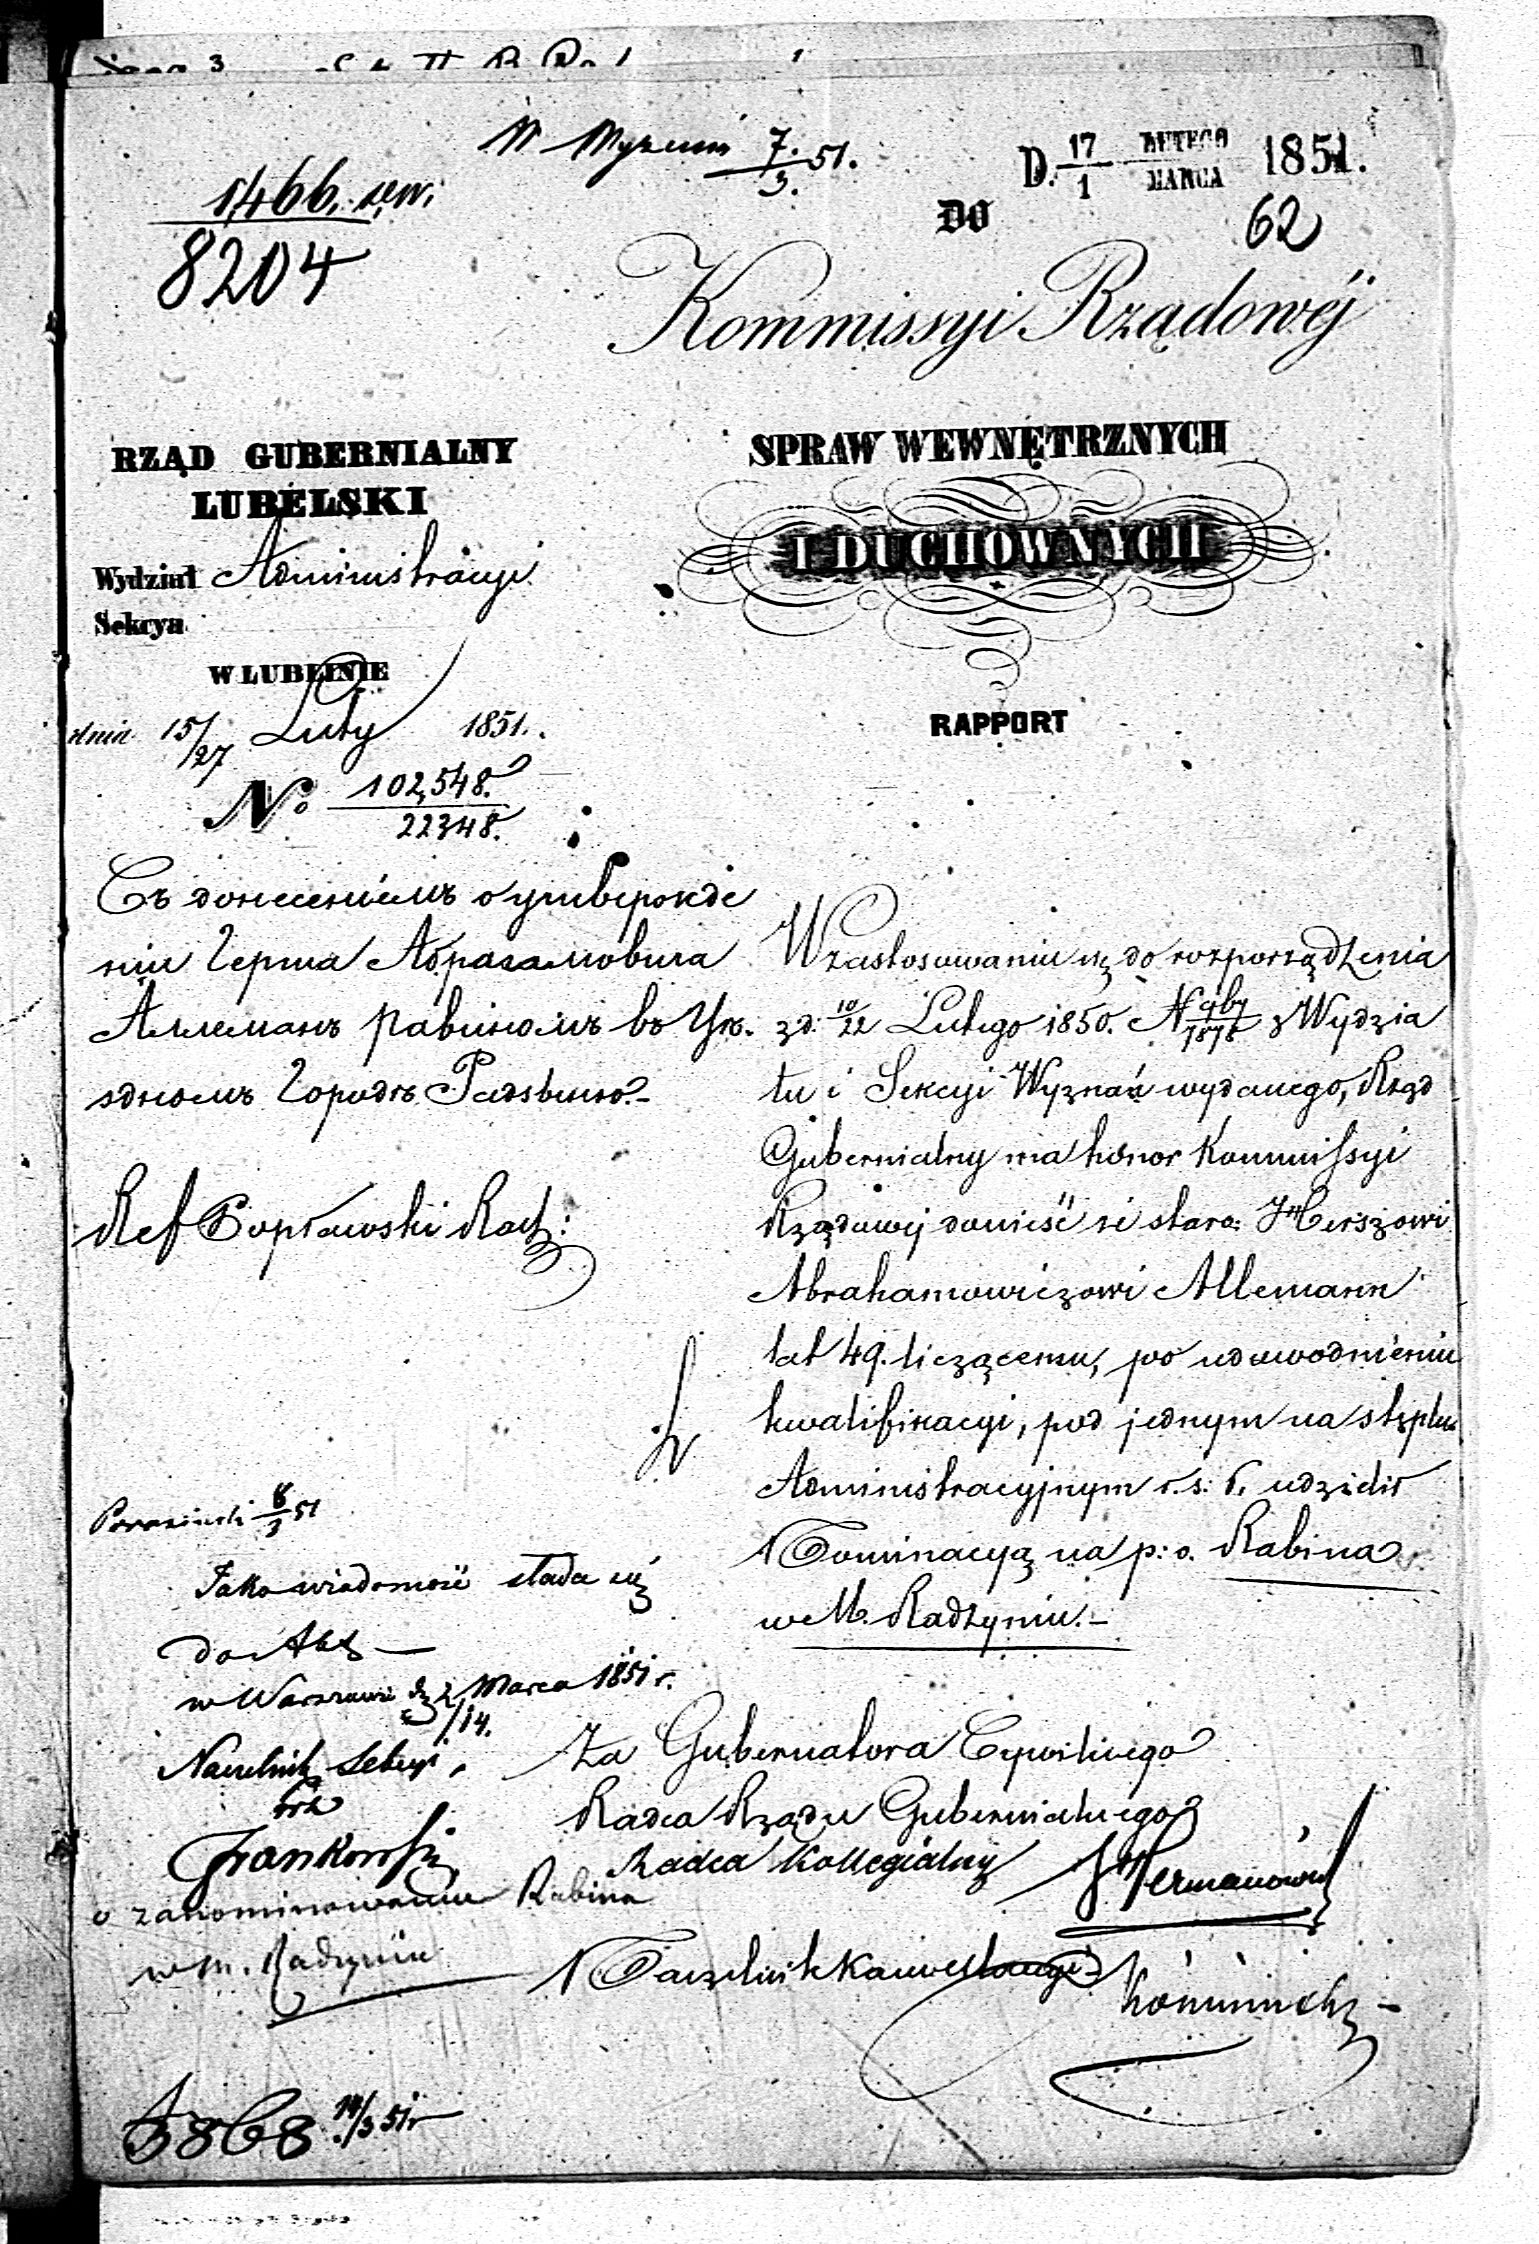 W Wyznań 7./3. 51.
D. 17/1 LUTEGO/MARCA 1851.
1,466. wew.
8204
DO
62
Kommissyi Rządowéj
RZĄD GUBERNIALNY
LUBELSKI
SPRAW WEWNĘTRZNYCH
I DUCHOWNYCH
Wydział Administracyi
Sekcya
W LUBLINIE
dnia 15/27 Luty 1851.
RAPPORT
No 102,548./22348.
Съ донесеніемъ о утвержде
ніи Герша Абрагамовича
Аллеманъ равиномъ въ Уѣ.
здномъ Городѣ Радзынѣ.-
Ref Popławski Radz:
W zastosowaniu się do rozporządzenia
z d. 10/22 Lutego 1850. N z Wydzia
łu i Sekcyi Wyznań wydanego, Rząd
Gubernialny ma honor Kommissyi
Rządowej donieść że staro: Herszowi
Abrahamowiczowi Allemann
lat 49. liczącemu, po udowodnieniu
kwalifikacyi, pod jednym na stęplu
Administracyjnym r. s. udzielił
Nominacyą na p: o. Rabina
w M. Radzyniu.-
8/3 51
Jako wiadomość składa się
do Akt
w Warszawie d. 2/14. Marca 1851 r.
Naczelnik Sekcyi
Frankowski
o zanominowaniu Rabina
w m. Radzyniu
Za Gubernatora Cywilnego
Radca Rządu Gubernialnego
Radca Kollegialny Hermanowicz
Naczelnik Kancellaryi
5868 14/3 51r